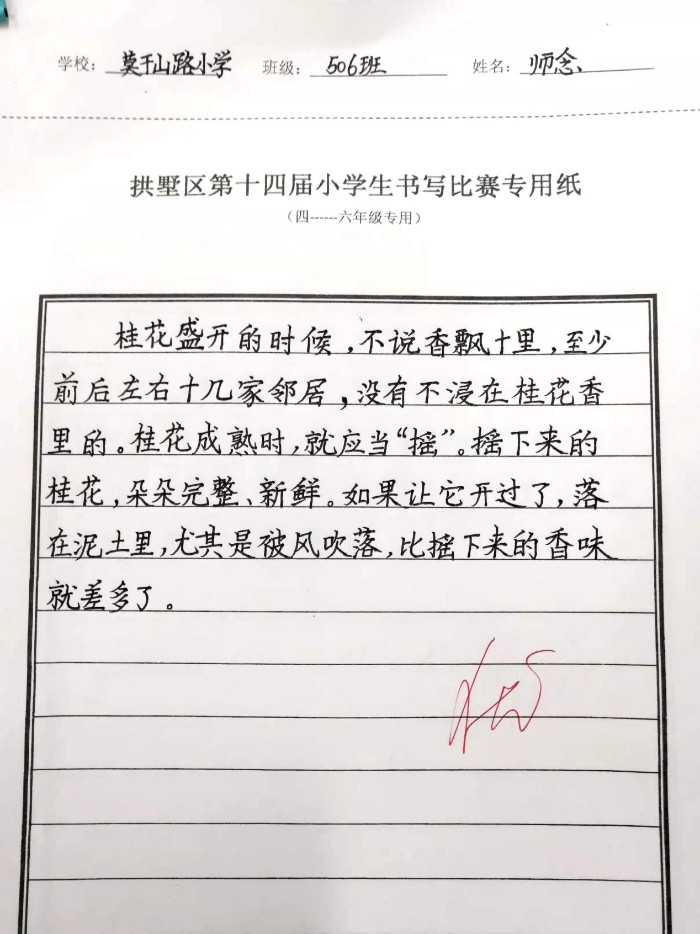 学校：莫干山路小学 班级：506班 姓名：师念
拱墅区第十四届小学生书写比赛专用纸
（四------六年级专用）
桂花盛开的时候，不说香飘十里，至少
前后左右十几家邻居，没有不浸在桂花香
里的。桂花成熟时，就应当“摇”。摇下来的
桂花，朵朵完整、新鲜。如果让它开过了，落
在泥土里，尤其是被风吹落，比摇下来的香味
就差多了。